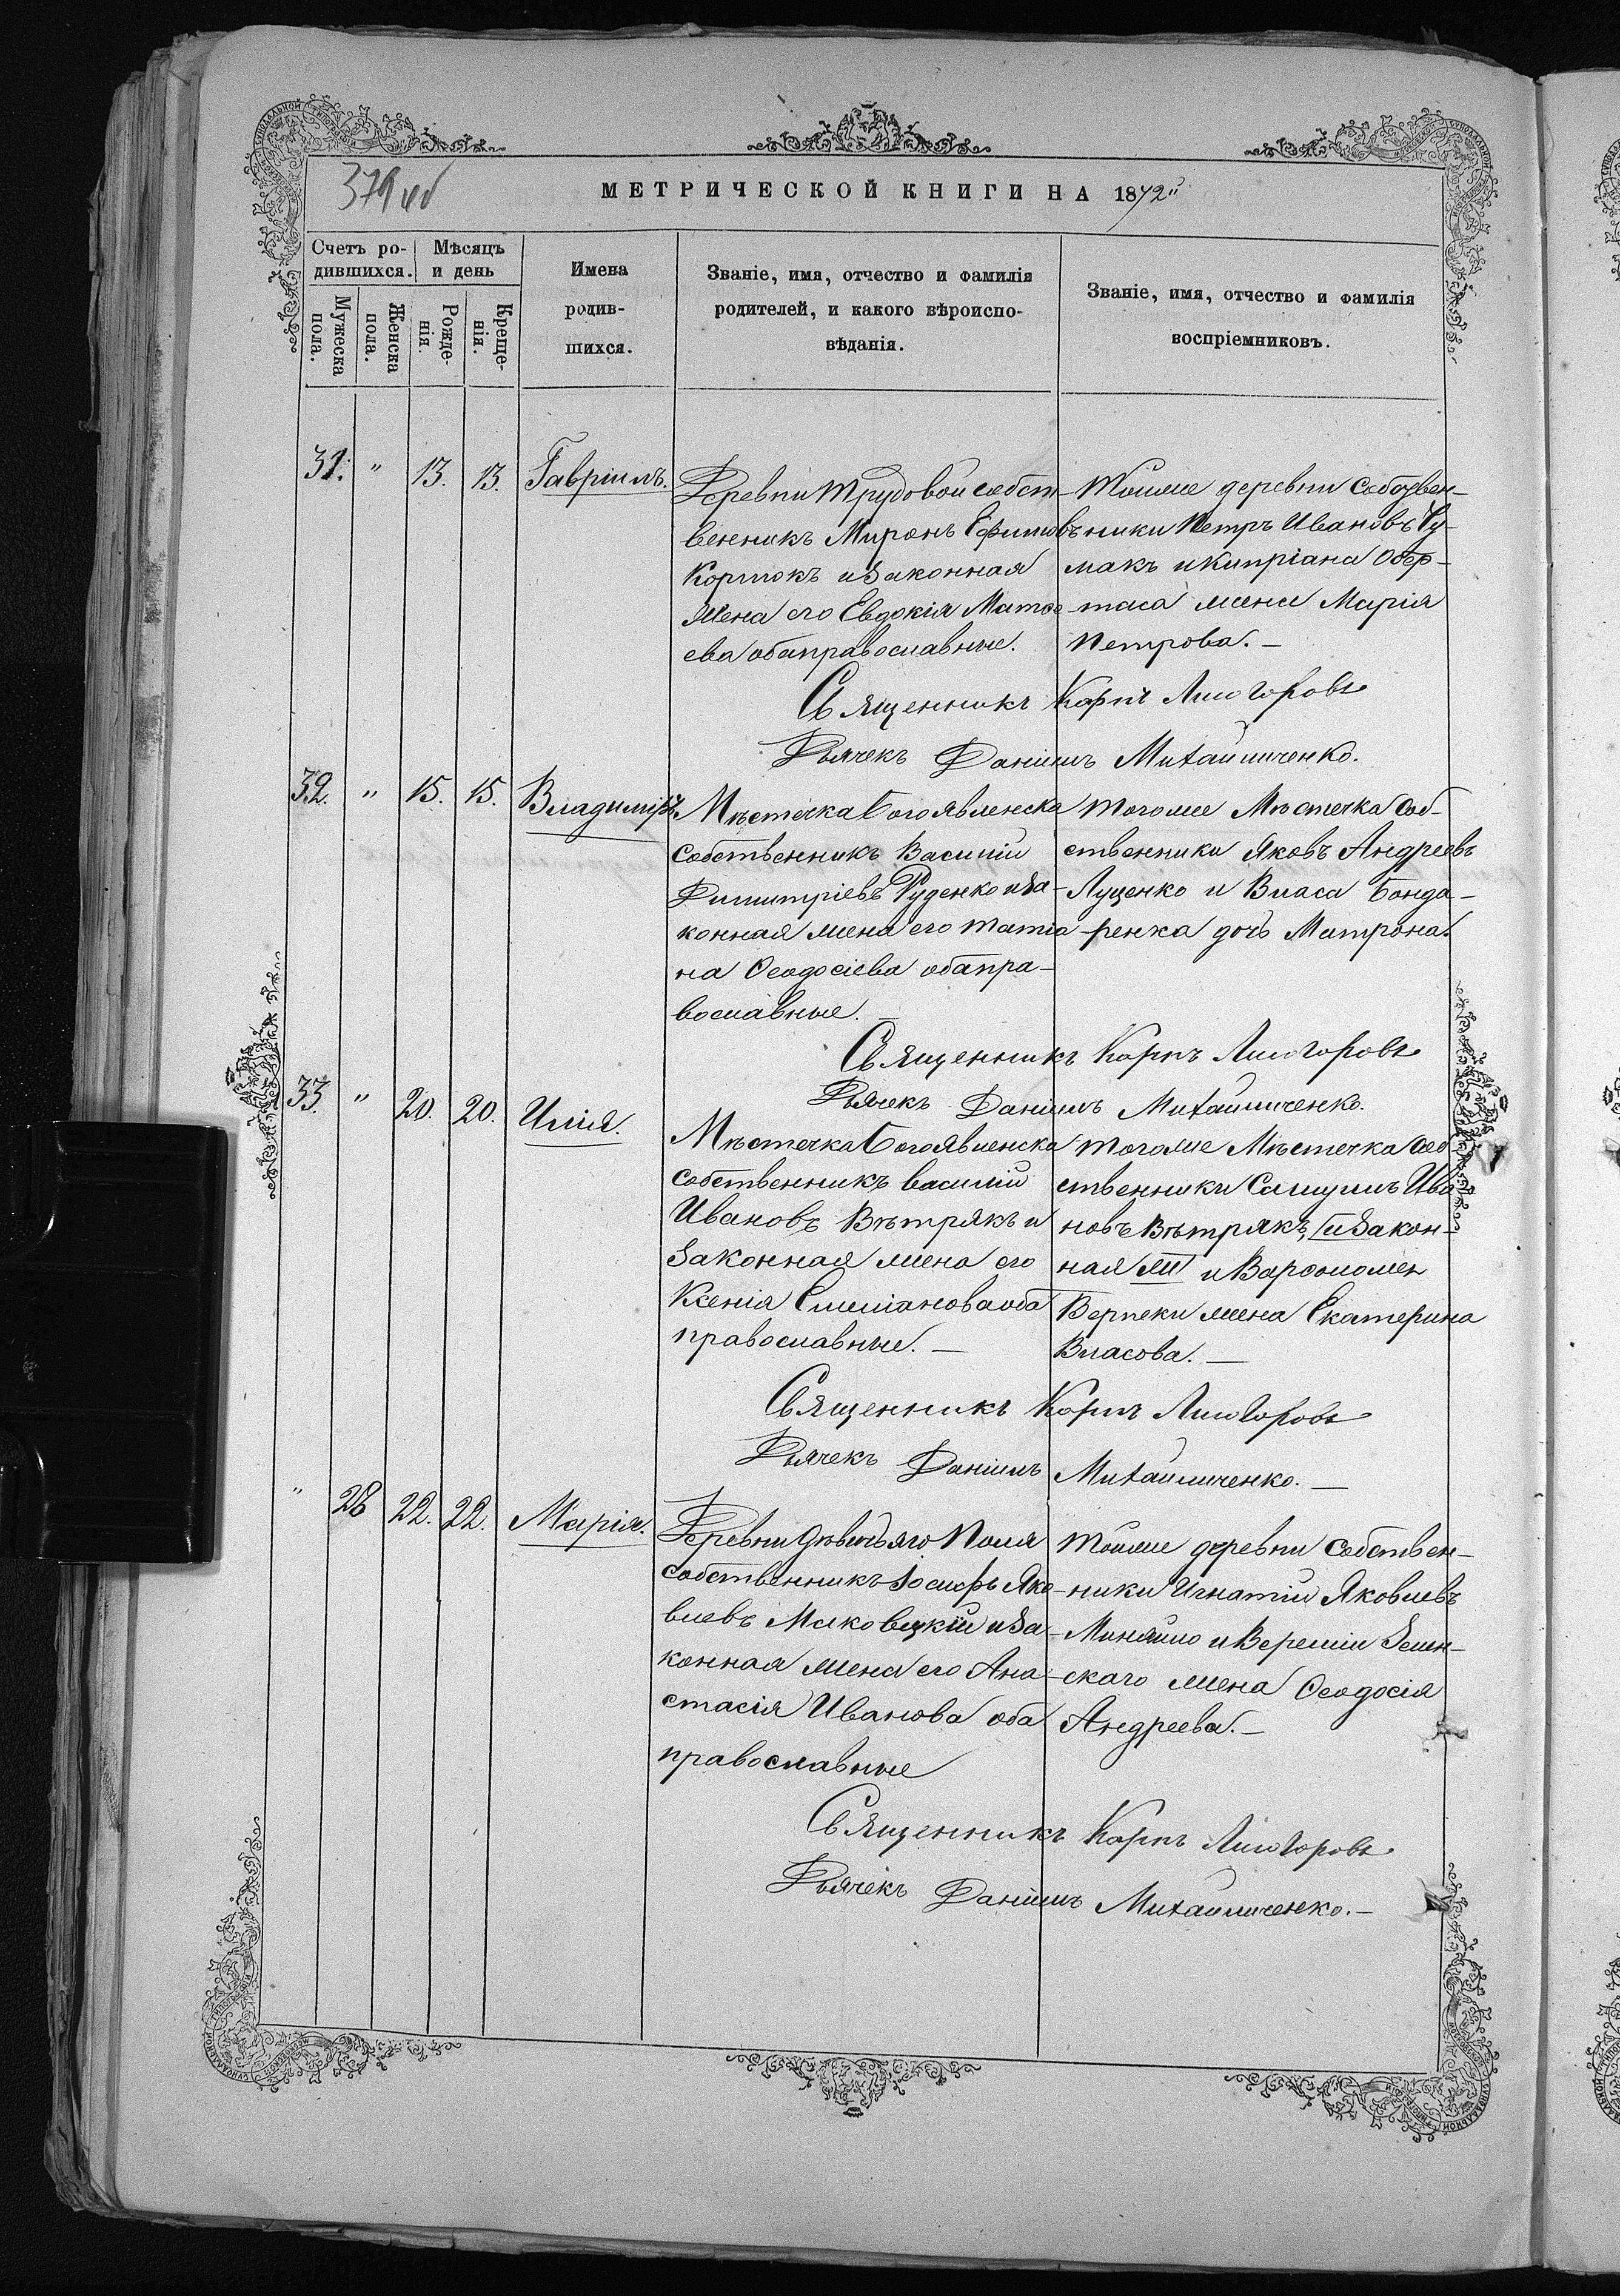 379 об
МЕТРИЧЕСКОЙ КНИГИ НА 1872
Счетъ ро-
дившихся.
Мѣсяцъ
и день
Мужеска
пола.
Женска
пола.
Рожде-
нія.
Креще-
нія.
Имена
родив-
шихся.
Званіе, имя, отчество и фамилія
родителей, и какого вѣроиспо-
вѣданія.
Званіе, имя, отчество и фамилія
воспріемниковъ.
31. " 13. 13. Гавріилъ.
Деревни Трудовой собст-
венникъ Миронъ Ефимовъ
Кортокъ и законная
жена его Евдокія Матѳе
ева оба православные.
Тойже деревни собствен-
ники Петръ Ивановъ Чу-
макъ и Кипріана Обер-
таса жена Марія
Петрова. —
Священникъ Карпъ Лиогоровъ
Дьячекъ Даніилъ Михайличенко.
32. " 15. 15. Владиміръ.
Мѣстечка Богоявленска
собственникъ Василій
Димитріевъ Руденко и за-
конная жена его Татіа
на Ѳеодосіева оба пра-
вославные. —
Тогоже Мѣстечка соб-
ственники Яковъ Андреевъ
Луценко и Власа Бонда-
ренка дочь Матрона.
Священникъ Карпъ Лиогоровъ
Дьячекъ Даніилъ Михайличенко.
33. " 20. 20. Илія.
Мѣстечка Богоявленска
собственникъ Василій
Ивановъ Вѣтрякъ и
законная жена его
Ксенія Емиліанова оба
православные. —
Тогоже Мѣстечка соб-
ственники Самуилъ Ива
новъ Вѣтрякъ, и закон-
ная и Варѳоломея
Верпеки жена Екатерина
Власова. —
Священникъ Карпъ Лиогоровъ
Дьячекъ Даніилъ Михайличенко. —
" 28 22. 22. Марія.
Деревни Поля
собственникъ Іосифъ Яко-
влевъ Маковецкій и за-
конная жена его Ана-
стасія Иванова оба
православные
Тойже деревни собствен-
ники Игнатій Яковлевъ
Минайло и Веремія Зелен-
скаго жена Ѳеодосія
Андреева. —
Священникъ Карпъ Лиогоровъ
Дьячекъ Даніилъ Михайличенко. —